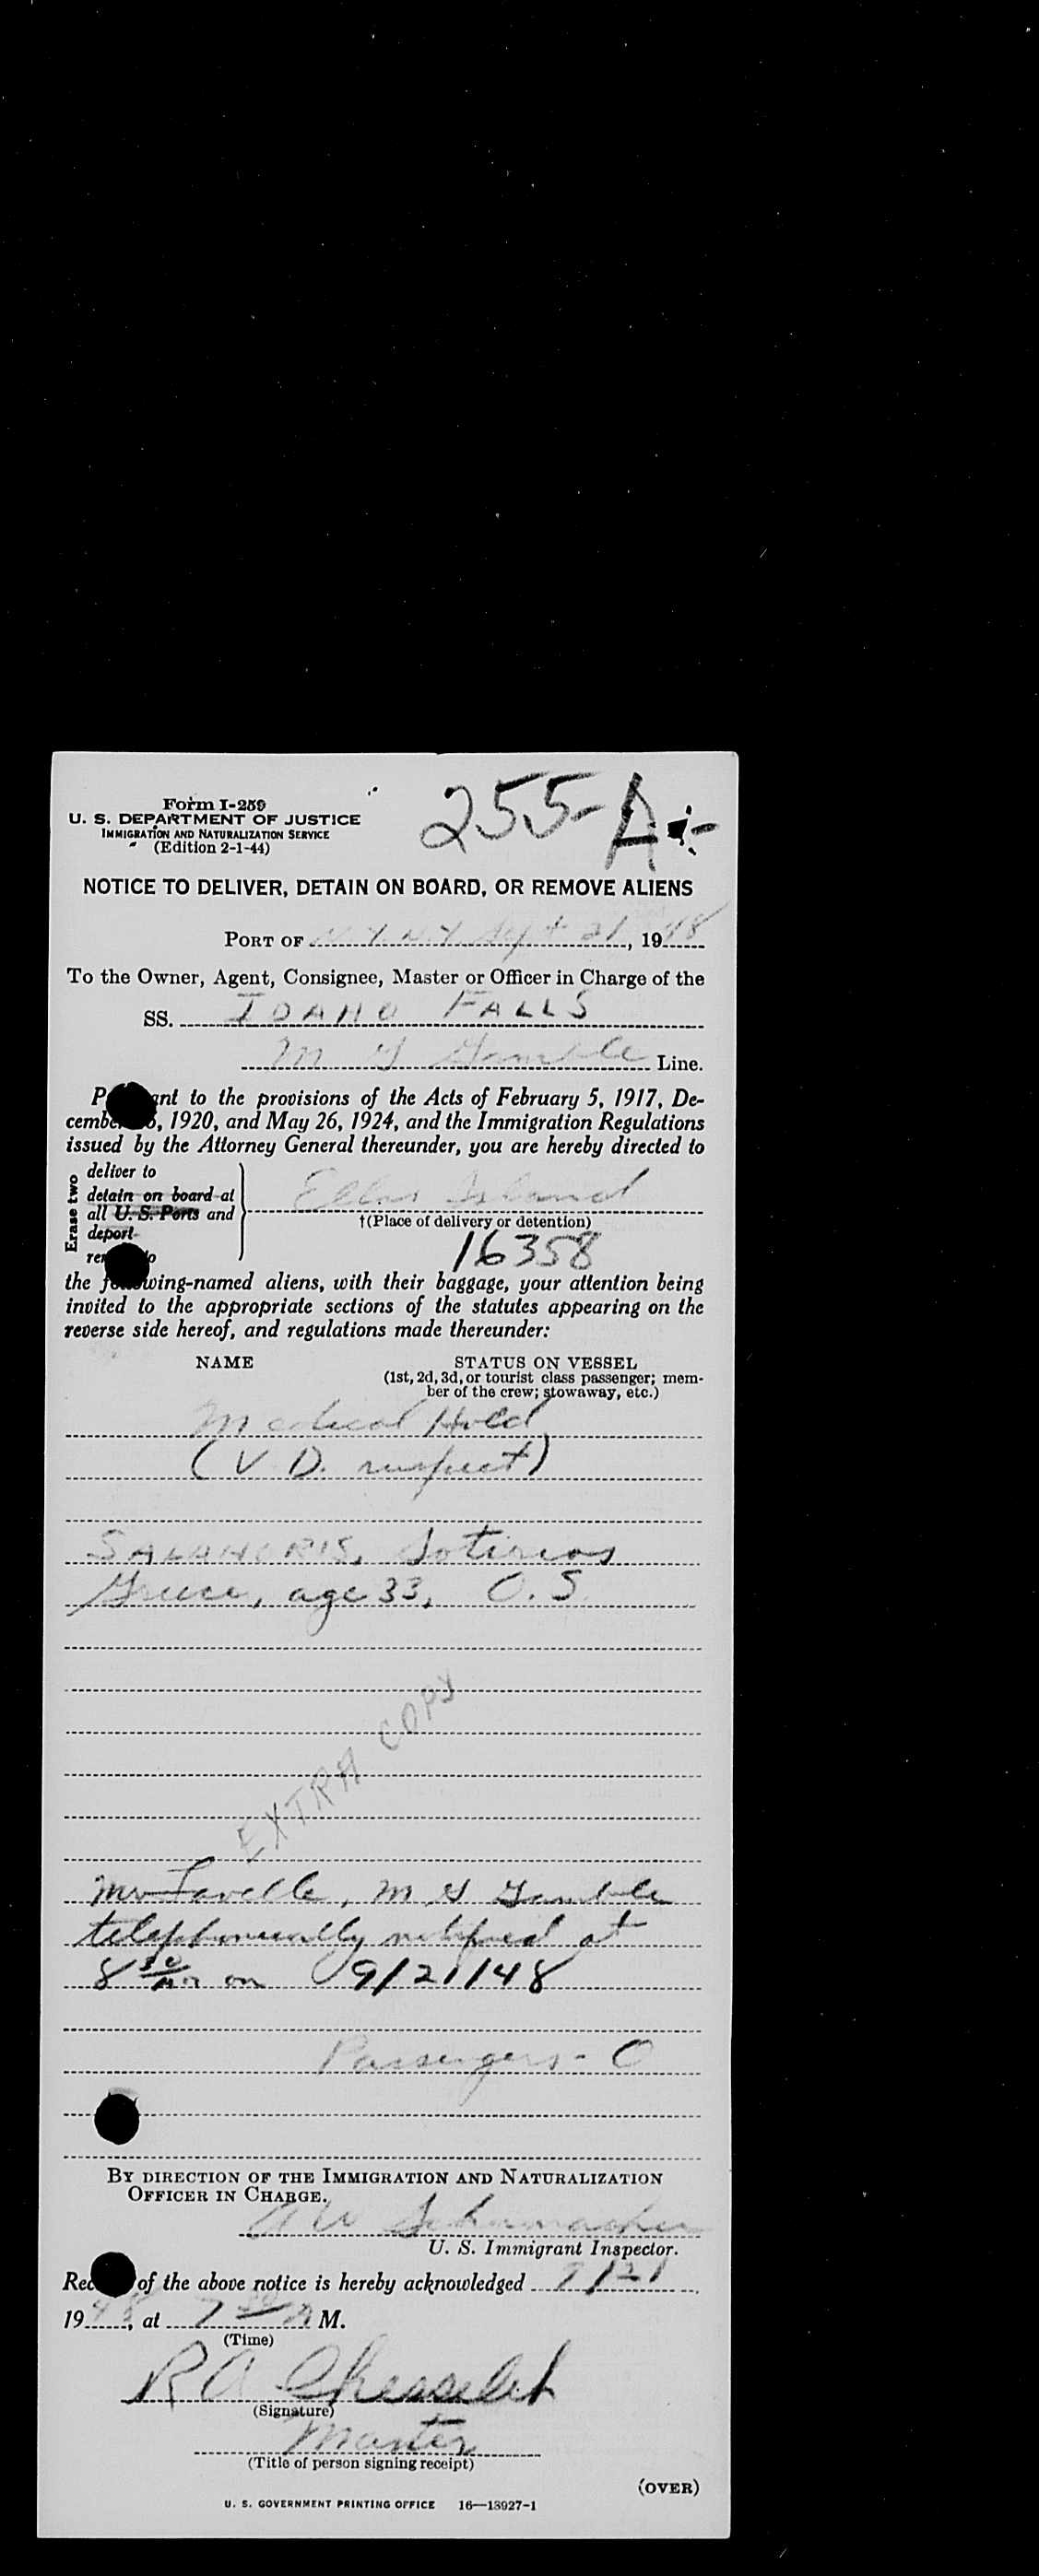 Form I-259
255-A
U. S. DEPARTMENT OF JUSTICE
IMMIGRATION AND NATURALIZATION SERVICE
(Edition 2-1-44)
NOTICE TO DELIVER, DETAIN ON BOARD, OR REMOVE ALIENS
PORT OF N.Y. N.Y. Sept 21, 1948
To the Owner, Agent, Consignee, Master or Officer in Charge of the
SS. IDAHO FALLS
M G Gamble Line.
to the provisions of the Acts of February 5, 1917, De-
1920, and May 26, 1924, and the Immigration Regulations
issued by the Attorney General thereunder, you are hereby directed to
Erase two
deliver to
detain on board at
all U. S. Ports and
deport
Ellis Island
†(Place of delivery or detention)
16358
the following-named aliens, with their baggage, your attention being
invited to the appropriate sections of the statutes appearing on the
reverse side hereof, and regulations made thereunder:
NAME STATUS ON VESSEL
(1st, 2d, 3d, or tourist class passenger; mem-
ber of the crew; stowaway, etc.)
Medical Hold
(V D. suspect)
Sotirios
Greece, age 33, O. S.
EXTRA COPY
Mr Lavelle, M G Gamble
telephonically notified at
8 30 on 9/21/48
Passengers - O
BY DIRECTION OF THE IMMIGRATION AND NATURALIZATION
OFFICER IN CHARGE.
Schumacher
U. S. Immigrant Inspector.
of the above notice is hereby acknowledged 9/21
1948, at 7 A M.
(Time)
R A
(Signature)
Master
(Title of person signing receipt)
(OVER)
U. S. GOVERNMENT PRINTING OFFICE 16—13927-1